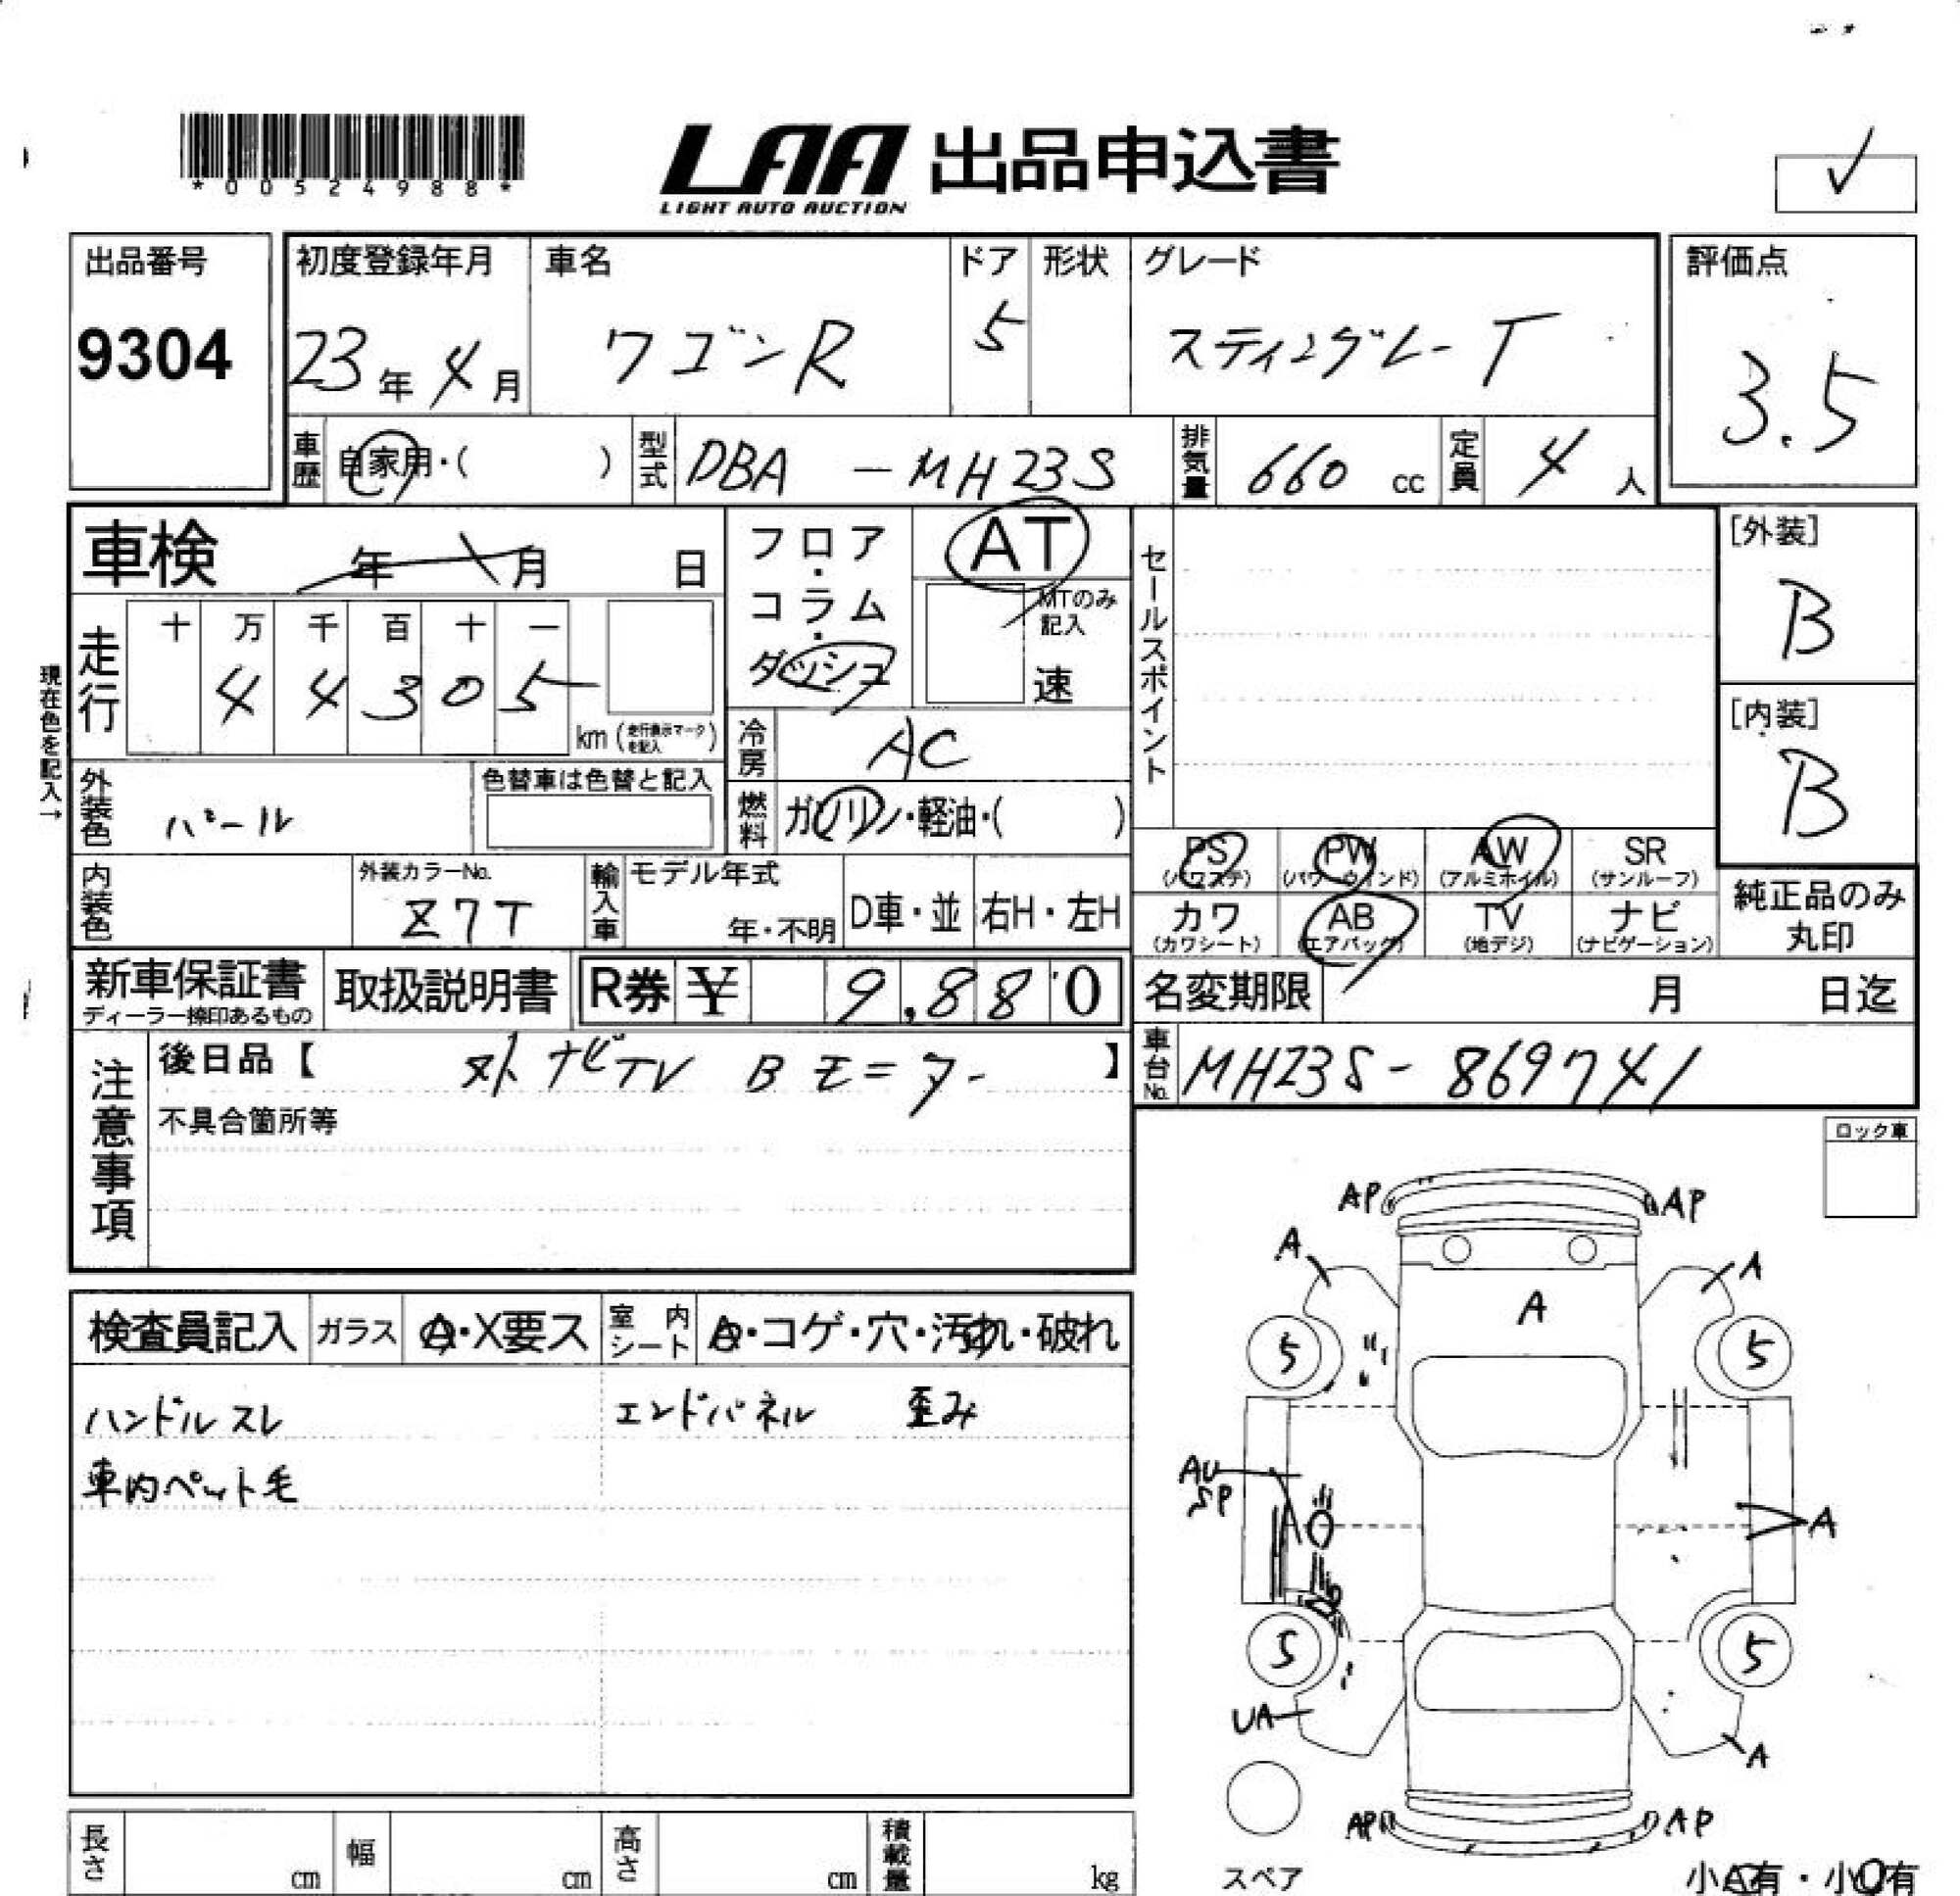 *00524988*
LAA 出品申込書
LIGHT AUTO AUCTION
出品番号
9304
初度登録年月
23年4月
車名
ワゴンR
ドア
5
形状
グレード
スティングレーT
評価点
3.5
車歴
自家用・( )
型式
DBA -MH23S
排気量
660 cc
定員
4 人
車検 年 月 日
フロア・コラム・ダッシュ
AT
MTのみ記入
速
セールスポイント
[外装]
B
[内装]
B
現在色を記入→
走行
十 万 千 百 十 一
4 4 3 0 5
km (走行表示マークを記入)
冷房
AC
外装色
パール
色替車は色替と記入
燃料
ガソリン・軽油・( )
内装色
外装カラーNo.
Z7T
輸入車
モデル年式
年・不明
D車・並
右H・左H
PS (パワステ)
PW (パワーウィンド)
AW (アルミホイル)
SR (サンルーフ)
カワ (カワシート)
AB (エアバック)
TV (地デジ)
ナビ (ナビゲーション)
純正品のみ丸印
新車保証書
ディーラー捺印あるもの
取扱説明書
R券 ¥ 9,880
名変期限 月 日迄
車台No.
MH23S-869741
注意事項
後日品【 外ナビTV Bモニター 】
不具合箇所等
ロック車
検査員記入
ガラス
A・X要ス
室内シート
A・コゲ・穴・汚れ・破れ
ハンドルスレ
エンドパネル 歪み
車内ペット毛
AP
AP
A
A
A
5
5
AU
SP
A
5
5
UA
A
AP
AP
スペア
小A有・小U有
長さ cm
幅 cm
高さ cm
積載量 kg